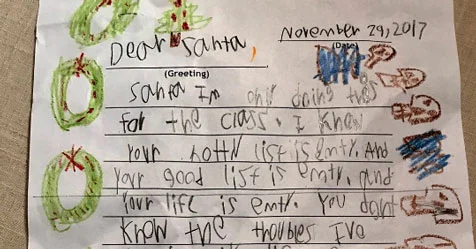 November 29, 2017
(Date)
Dear Santa,
(Greeting)
Santa Im only doing this
for the class. I know
your notty list is emty. And
your good list is emty. And
your life is emty. You dont
know the troubles Ive